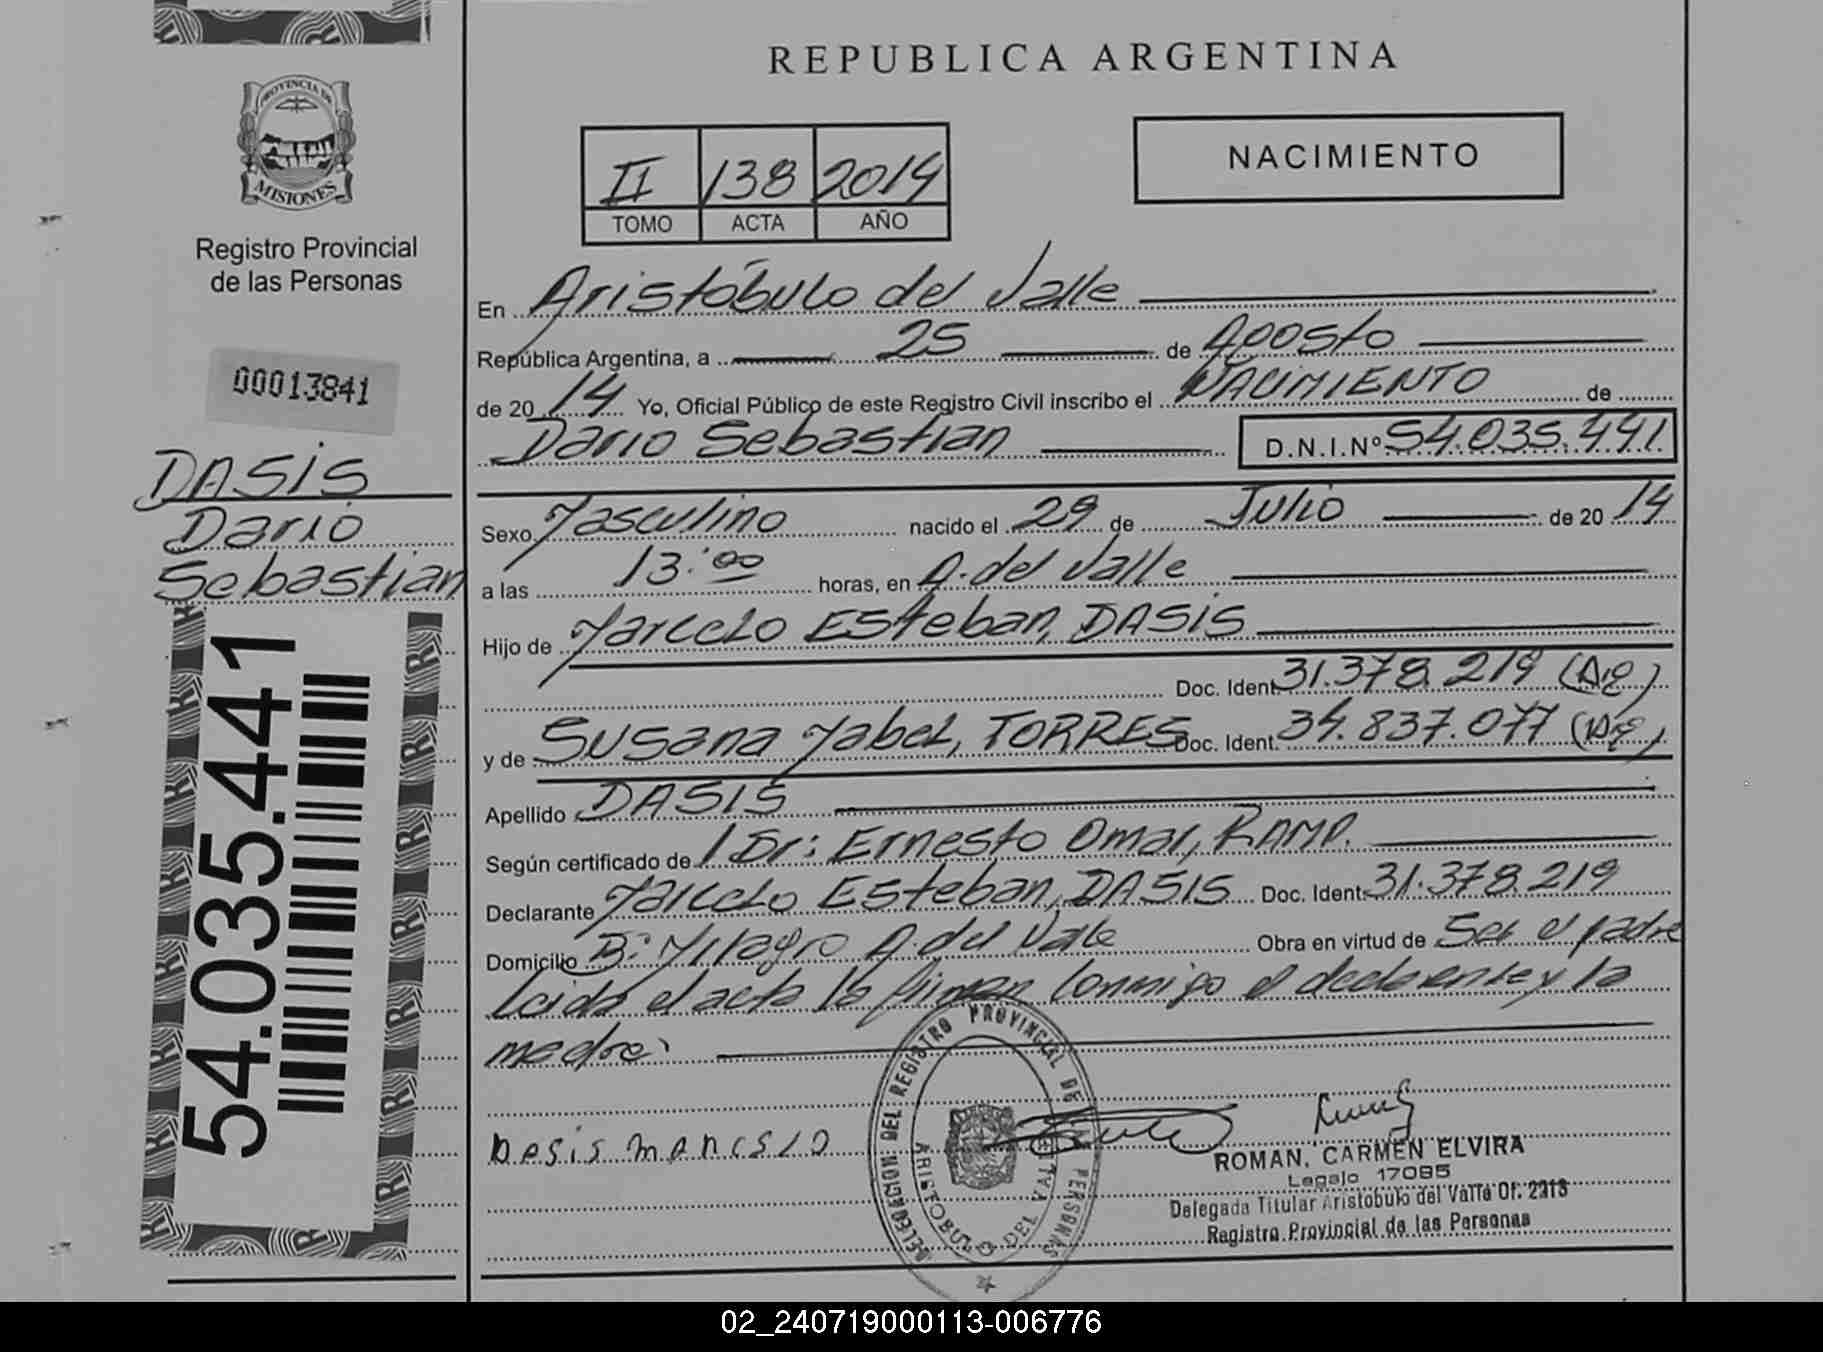 PROVINCIA DE
MISIONES
Registro Provincial
de las Personas
00013841
DASIS
Dario
Sebastian
54.035.441
REPUBLICA ARGENTINA
NACIMIENTO
II 138 2014
TOMO ACTA AÑO
En Aristóbulo del Valle
República Argentina, a 25 de Agosto
de 20 14 Yo, Oficial Público de este Registro Civil inscribo el NACIMIENTO de
Dario Sebastian D.N.I.Nº 54.035.441
Sexo Masculino nacido el 29 de Julio de 20 14
a las 13:00 horas, en A. del Valle
Hijo de Marcelo Esteban, DASIS
Doc. Ident. 31.378.219 (Arg)
y de Susana Mabel, TORRES Doc. Ident. 34.837.077 (Arg)
Apellido DASIS
Según certificado de Dr: Ernesto Omar, RAMP.
Declarante Marcelo Esteban, DASIS Doc. Ident. 31.378.219
Domicilio B: Milagro A. del Valle Obra en virtud de Ser el padre
Leida el acta la firman conmigo el declarante y la
madre.
DELEGACION DEL REGISTRO PROVINCIAL DE LAS PERSONAS
ARISTOBULO DEL VALLE
Dasis marcelo
ROMAN, CARMEN ELVIRA
Legajo 17085
Delegada Titular Aristobulo del Valle Of. 2213
Registro Provincial de las Personas
02_240719000113-006776